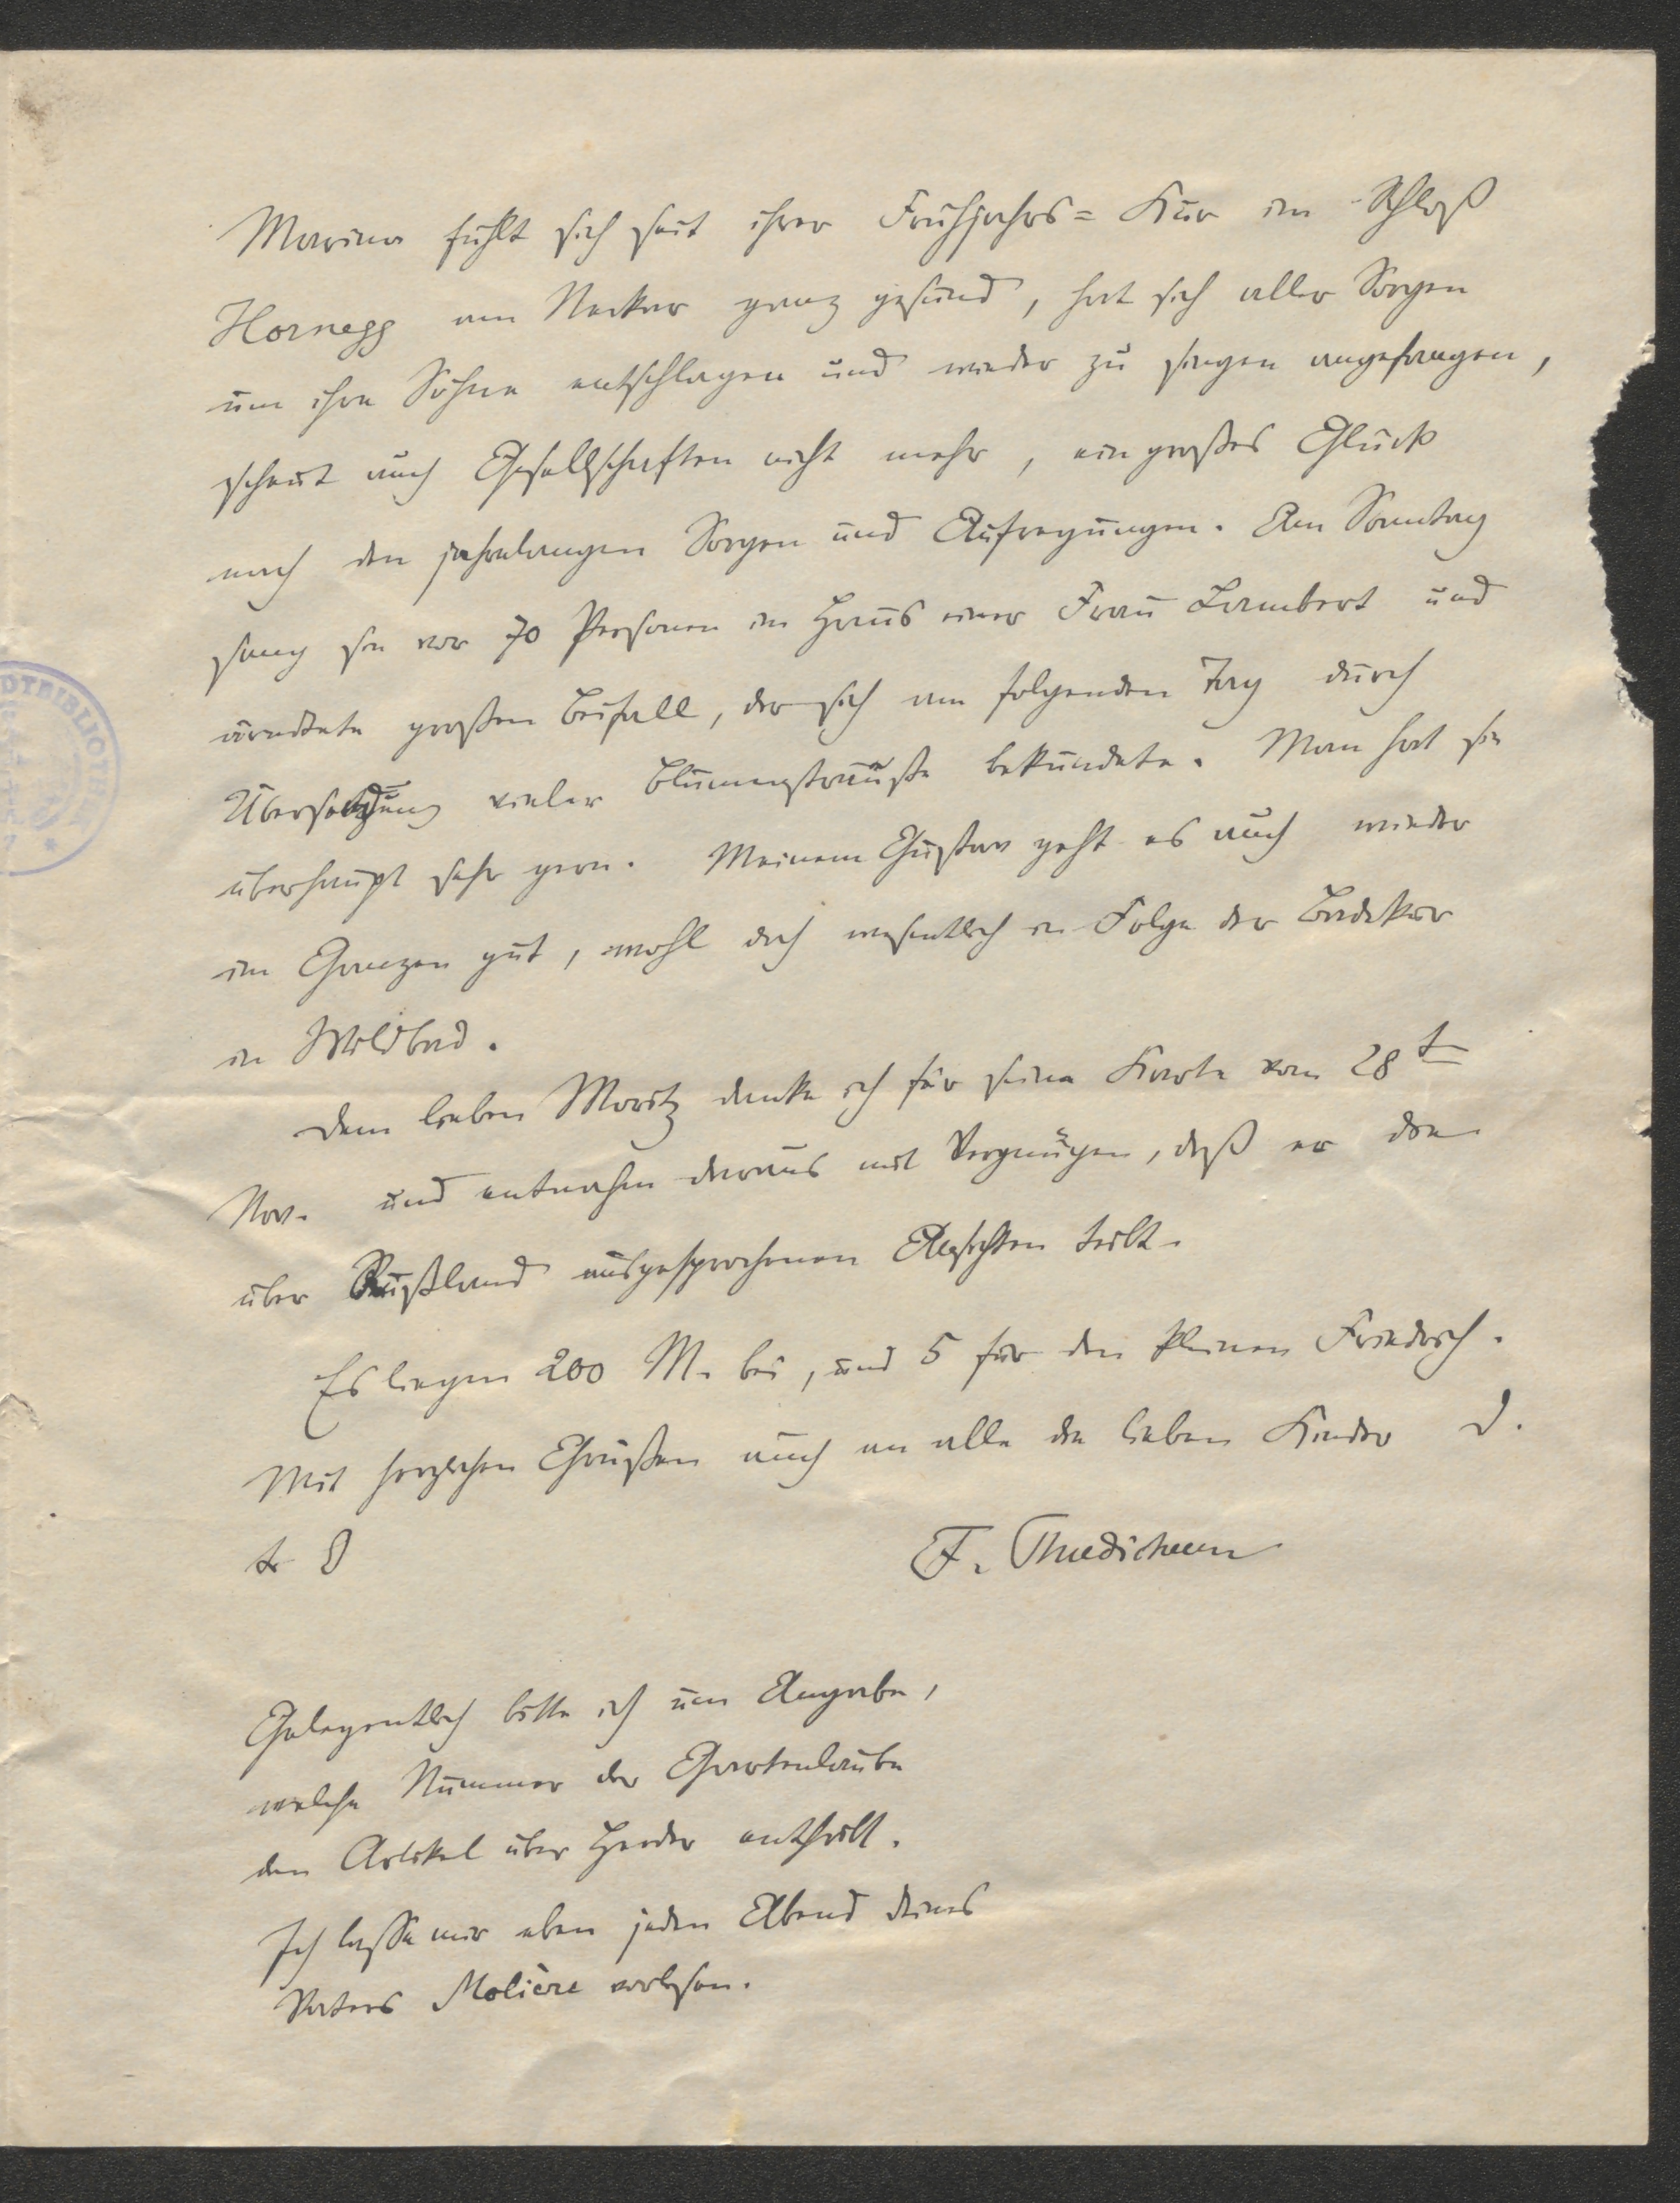 Marina fühlt sich seit ihrer Frühjahrs= Kur im Schloß
Hornegg am Neckar ganz gesund, hat sich aller Sorgen
um ihre Söhne entschlagen und wieder zu singen angefangen,
scheut auch Gesellschaften nicht mehr, ein großes Glück
nach den jahrelangen Sorgen und Aufregungen. Am Sonntag
sang sie vor 70 Personen im Haus einer Frau Lambert und
ärndtete großen Beifall, der sich am folgenden Tag durch
Übersendung vieler Blumensträuße bekundete. Man hat sie
überhaupt sehr gern. Meinem Gustav geht es auch wieder
im Ganzen gut, wohl doch wesentlich in Folge der Badekur
in Wildbad.
Dem lieben Moritz danke ich für seine Karte vom 28t
Nov. und entnahm daraus mit Vergnügen, daß er die
über Rußland ausgesprochenen Ansichten teilt.
Es liegen 200 M. bei, und 5 für den kleinen Friedrich.
Mit herzlichen Grüßen auch an alle die lieben Kinder D.
tr O
F. Thudichum
Gelegentlich bitte ich um Angabe,
welche Nummer der Gartenlaube
den Artikel über Herder enthält.
Ich lasse mir eben jeden Abend deines
Vaters Molière vorlesen.
DTBIBLIOTH